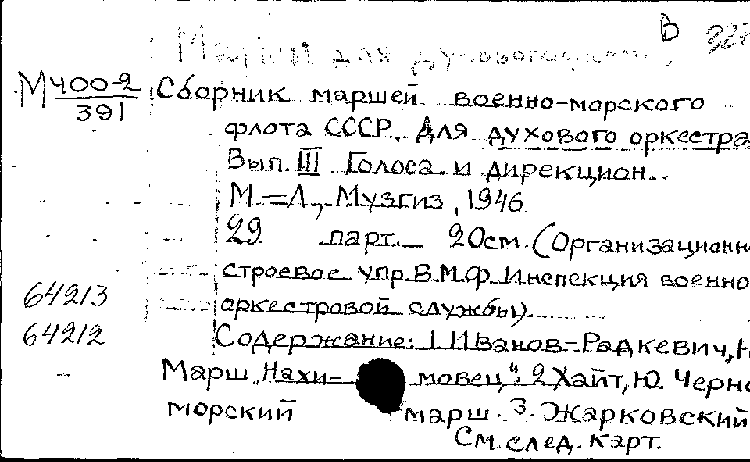 В
Марши для духового
М 400-2
391
Сборник маршей военно-морского
флота СССР. Для духового оркестра
Вып. III Голоса и дирекцион.
М.=Л., Музгиз, 1946.
29 парт. 20см. (Организационн
строевое упр. В.М.Ф. Инспекция военно
оркестровой службы).
64213
64212
Содержание: 1. Иванов-Радкевич, Н.
Марш "Нахи- мовец". 2. Хайт, Ю. Черно
морский марш. 3. Жарковский
См. след. карт.